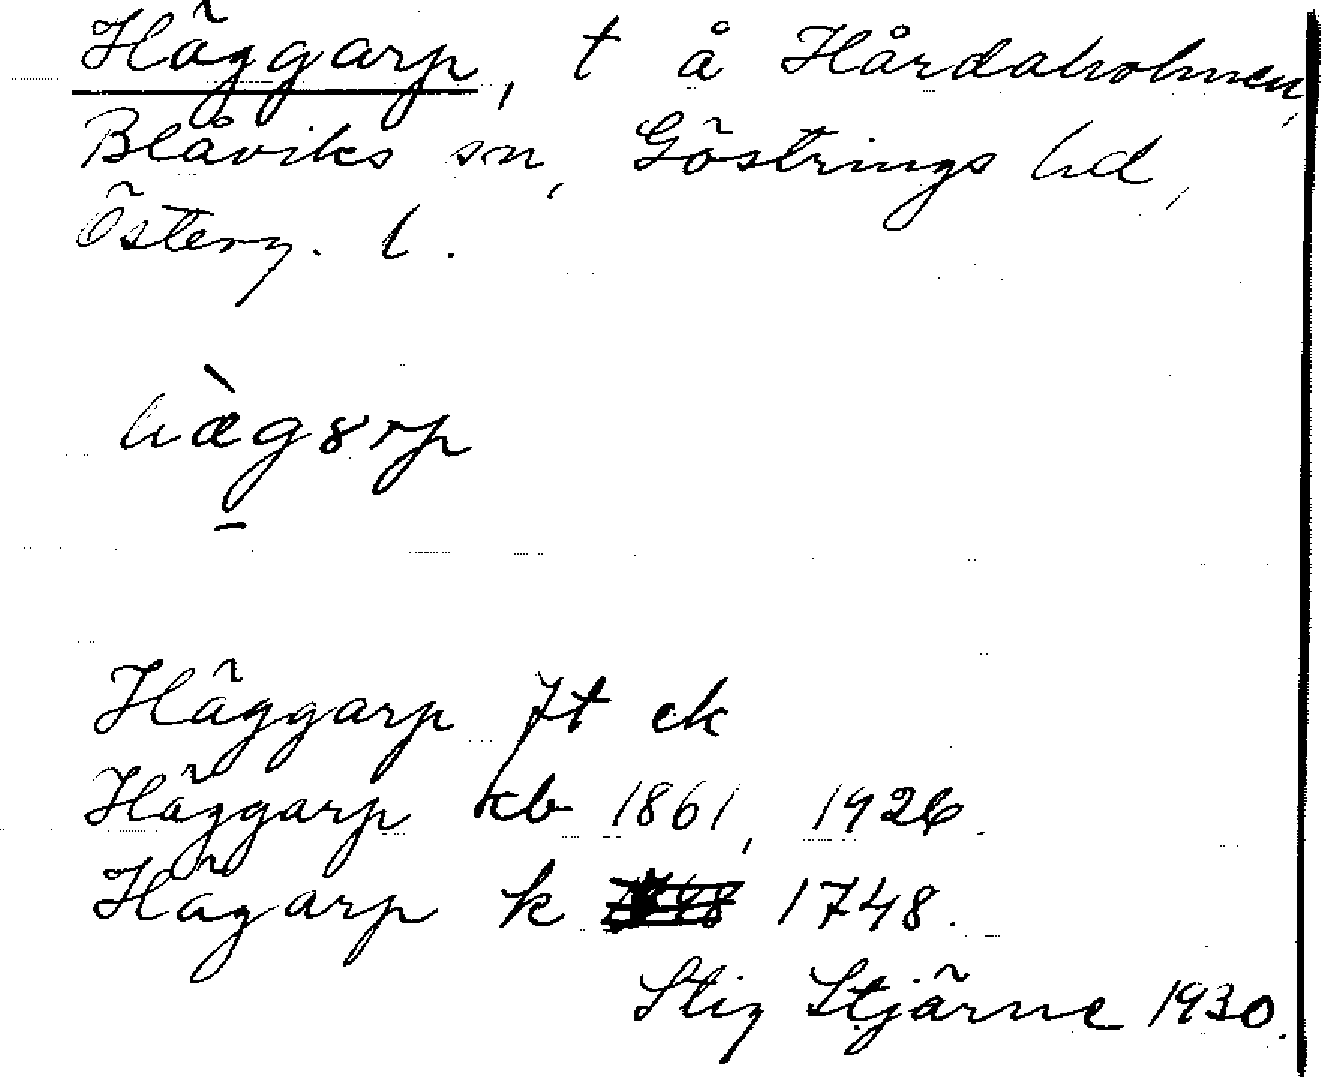 Häggarp, t å Hårdaholmen,
Blåviks sn, Göstrings hd,
Österg. l.
hæ̀g̱ȣrp
Häggarp Jt ek
Häggarp kb 1861, 1926.
Hägarp k 1748.
Stig Stjärne 1930.